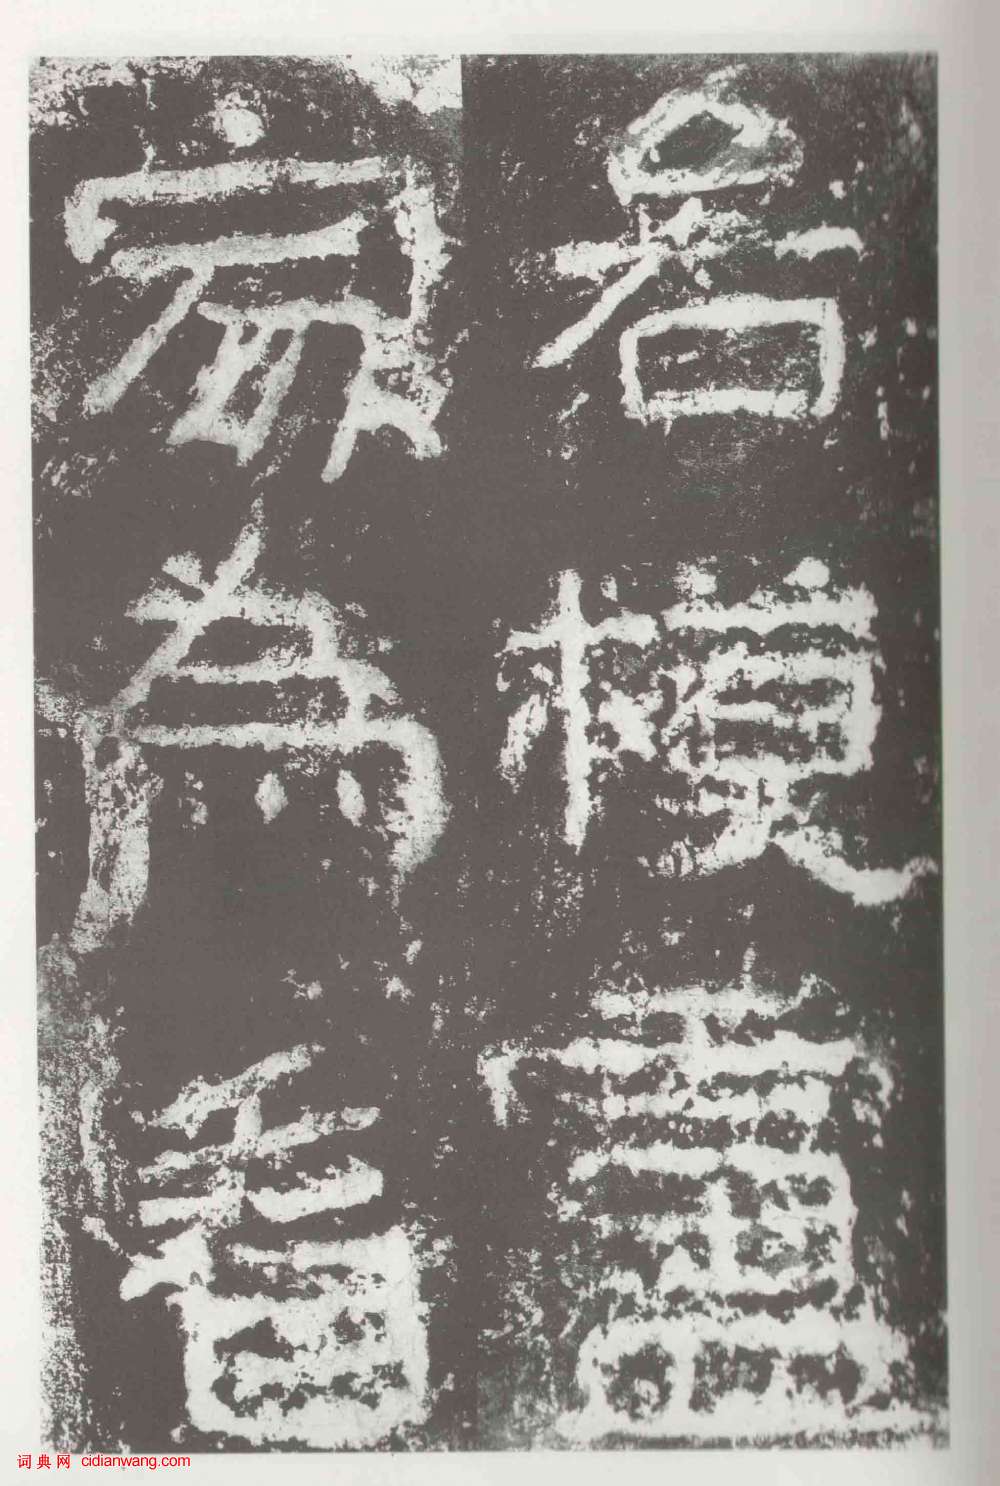 各模盧
家為看
词典网 cidianwang.com